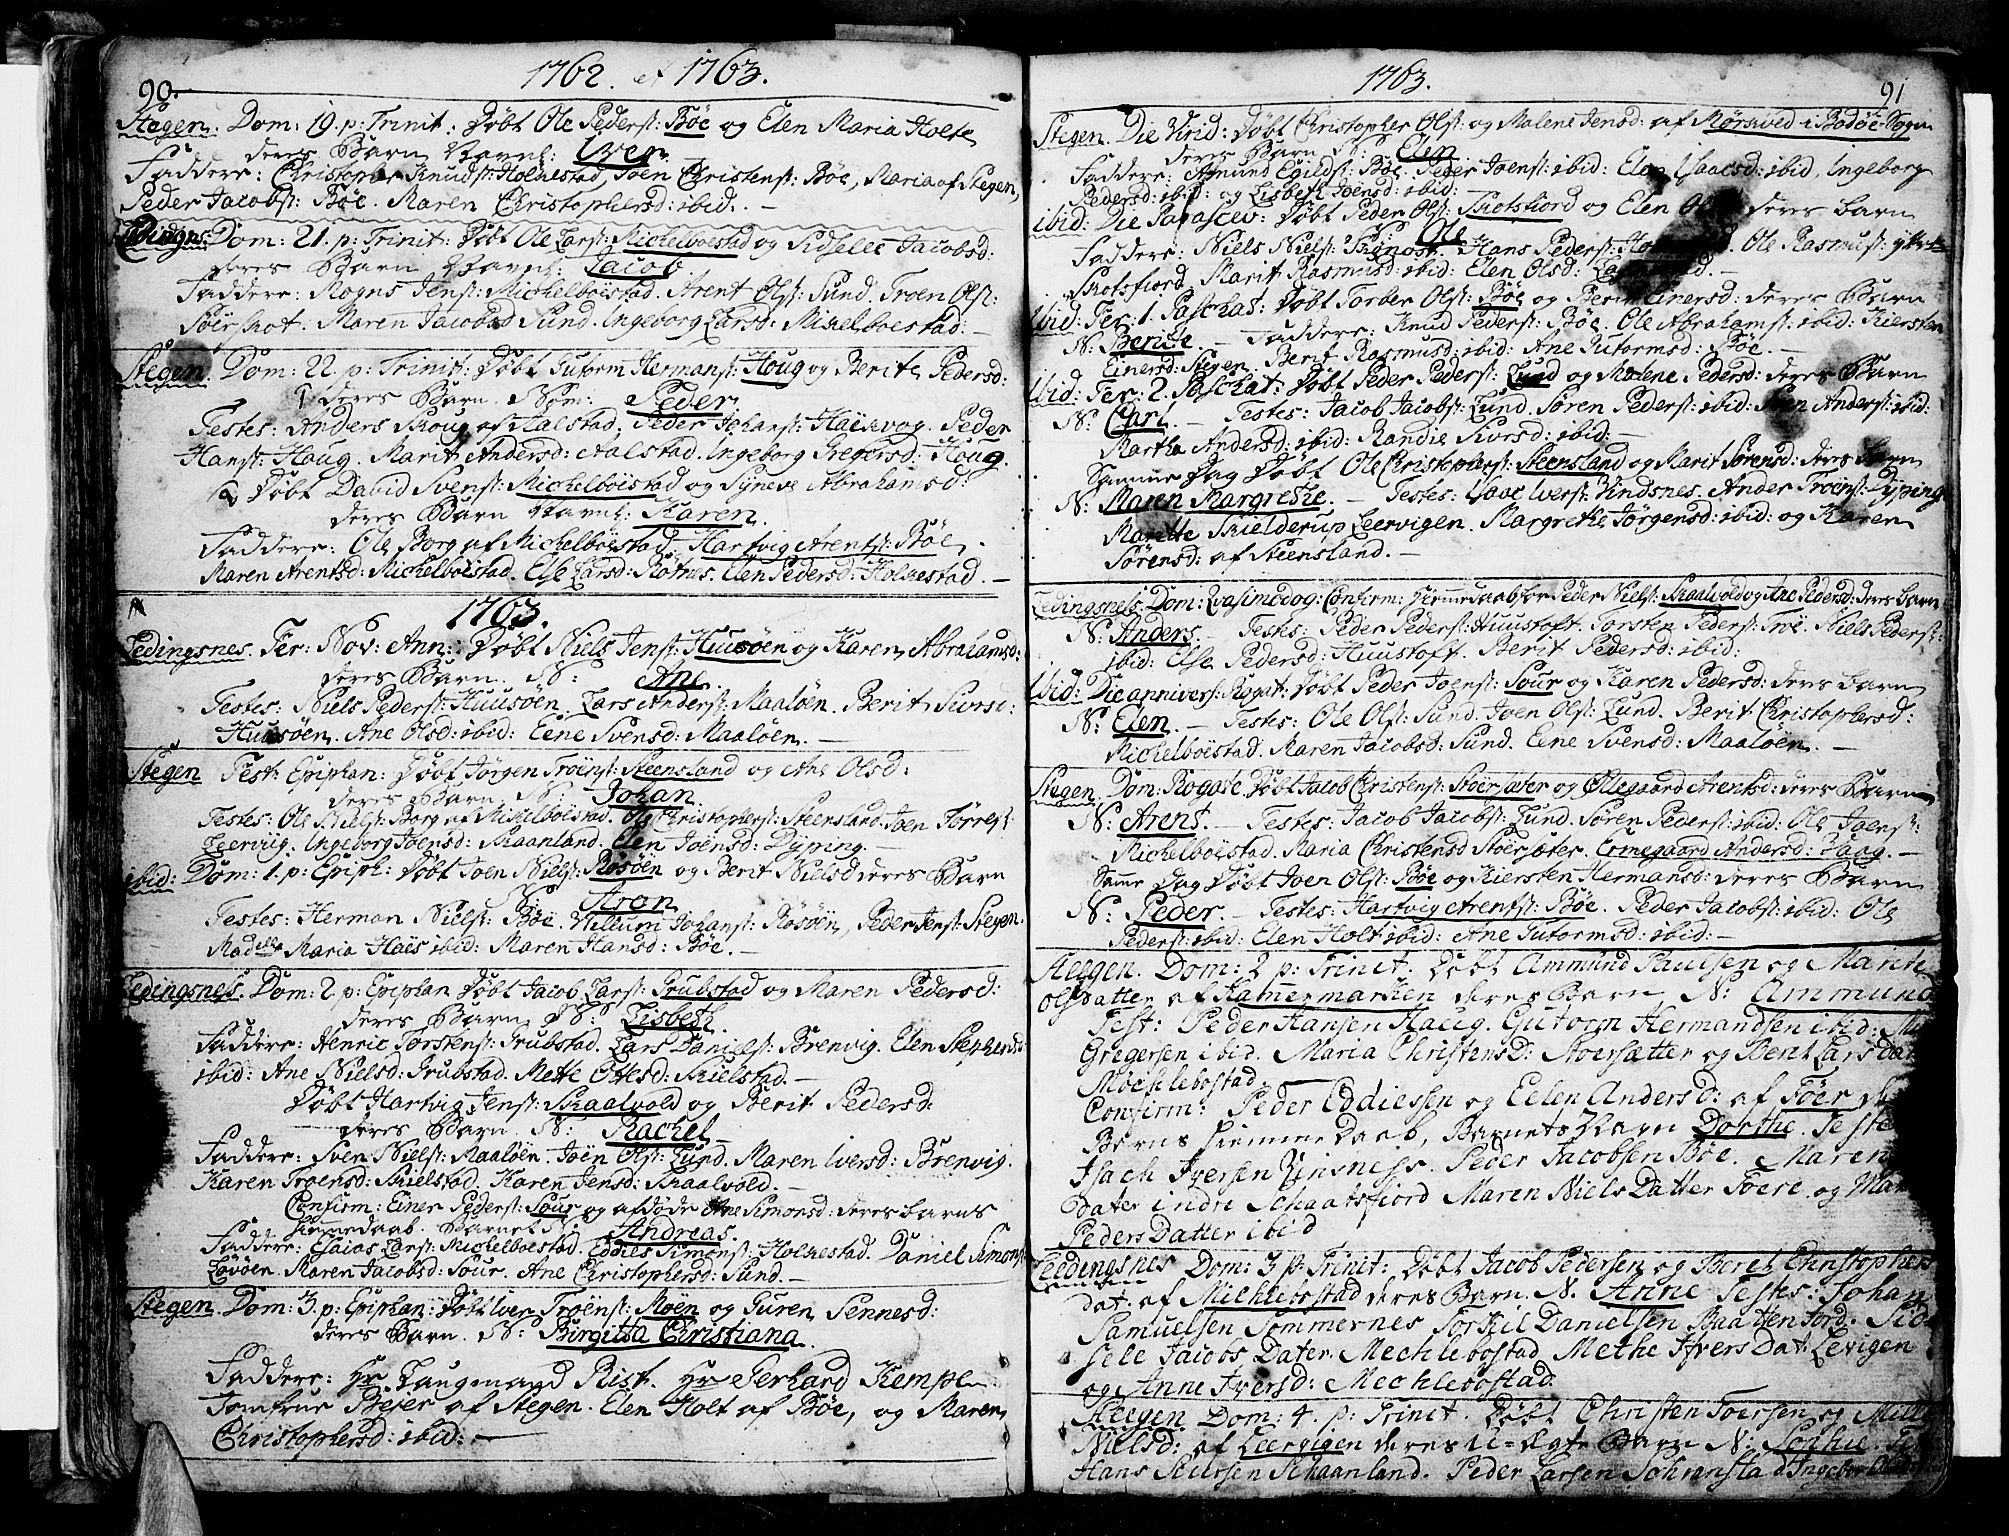 90.
1762. et 1763.
Stegen. Dom: 19. p: Trinit: Døbt Ole Peders: Bøe og Elen Maria Holte
deres Barn Navnl: Iver
Faddere: Christopher Knuds: Holkestad, Joen Christens: Bøe, Maria af Stegen,
Peder Jacobs: Bøe. Maren Christophersd: ibid: —
Dom: 21. p: Trinit: Døbt Ole Lars: Michelboestad og Sidselee Jacobsd:
deres Barn Navnl: Jacob.
Faddere: Rogns Jens: Michelboistad. Arent Ols: Sund. Troen Ols:
Søerskot. Maren Jacobsd Sund. Ingeborg Larsd: Mikelboestad: —
Stegen. Dom: 22. p: Trinit: Døbt Gutorm Hermans: Houg og Berite Pedersd:
deres Barn. Nom: Peder
Testes: Anders Skoug af Aalstad. Peder Johans: Haikvog. Peder
Hans: Houg. Marit Andersd: Aalstad. Ingeborg Gregersd: Houg.
Døbt David Svens: Michelboistad og Syneve Abrahamsd:
deres Barn Navnl: Karen.
Faddere: Ole Borg af Michelboistad. Hartvig Arents: Bøe.
Maren Arentsd: Michelboistad. Else Larsd: Rotnes. Elen Pedersd: Holkestad. —
1763.
Ledingsnes. Fer: Nov: Ann: Døbt Niels Jens: Huusøen og Karen Abrahamsd:
deres Barn. N: Ane
Testes: Niels Peders: Huusøen. Lars Anders: Maaløen. Berit Siversd:
Huusøen. Ane Olsd: ibid: Eene Svensd: Maaløen. —
Stegen Fest: Epiphan: Døbt Jørgen Troens: Steensland og Ane Olsd:
deres Barn N: Johan
Testes: Ole Niels: Borg af Mikelboistad. Ole Christophers: Steensland. Joen Torres:
Leerviig. Ingeborg Joensd: Skaanland. Elen Joensd: Dyping. —
ibid: Dom: 1. p: Epiph: Døbt Joen Niels: Røsøen og Berit Nielsd deres Barn
N: Aron
Testes: Herman Niels: Bøe. Willum Johans: Røsøen, Peder Jens: Stegen.
Madelle Maria Haiis ibid: Maren Hansd: Bøe. —
Ledingsnes. Dom: 2 p: Epiphan Døbt Jacob Lars: Grubstad og Maren Pedersd:
deres Barn N: Lisbeth.
Faddere: Henric Torstens: Grubstad. Lars Daniels: Brenvig. Elen Stephensd:
ibid: Ane Nielsd: Grubstad. Mette Ottesd: Skielstad. —
Døbt Hartvig Jens: Skaalvold og Berit Pedersd:
deres Barn N: Rachel
Faddere: Sven Niels: Maaløen. Joen Ols: Lund. Maren Iversd: Brenvig.
Karen Troensd: Skielstad. Karen Jensd: Skaalvold. —
Confirm: Einer Peders: Sour og afdøde Ane Simonsd: deres barns
hiemmedaab. Barnet N: Andreas.
Faddere: Esaias Lars: Michelboestad. Eddies Simons: Holkestad. Daniel Simons:
Løvøen. Maren Jacobsd: Sour. Ane Christophersd: Sund. —
Stegen. Dom: 3. p: Epiphan: Døbt Iver Troens: Moen og Guren Jennesd:
deres Barn. N: Birgitta Christiana.
Faddere: Hr. Laugmand Rist. Hr Gerhard Kempe
Jomfrue Beier af Stegen. Elen Holt af Bøe, og Maren
Christophersd: ibid: —
1763.
91
Stegen. Die Virid: Døbt Christopher Ols: og Malene Jensd: af Mørsved i Bodøe-Sogn
deres Barn N: Elen
Faddere: Amund Egilds: Bøe. Peder Joens: ibid: Elen Isaacsd: ibid, Ingeborg
Pedersd: ibid: og Lisbeth Joensd: ibid:
ibid: Die Parascev: Døbt Peder Ols: Skotsfiord og Elen deres barn
N: Ole
Faddere: Niels Niels: Hans Peders: Ole Rasmus: yttre
Skotsfiord. Marit Rasmusd: ibid: Elen Olsd: —
Ibid: Fer: 1. Paschat: Døbt Torber Ols: Bøe og Berit Einersd: deres Barn
N: Berite. — Faddere: Knud Peders: Bøe. Ole Abrahams: ibid: Kiersten
Einersd: Stegen. Berit Rasmusd: ibid: Ane Gutormsd: Bøe. —
Ibid: Fer: 2. Paschat: Døbt Peder Peders: Lund og Malene Pedersd: deres Barn
N: Carl. — Testes: Jacob Jacobs: Lund. Søren Peders: ibid: Sven Anders: ibid:
Martha Andersd: ibid: Randie Siversd: ibid: —
Samme Dag Døbt Ole Christophers: Steensland og Marit Sørensd: deres Barn
N: Maren Margrethe. — Testes: Isaac Ivers: Vindsnes. Ander Troens: Dyping
Marithe Skielderup Leervigen. Margrethe Jørgensd: ibid: og Karen
Sørensd: af Steensland. —
Ledingsnes. Dom: Qvasimodog: Confirm: hiemmedaab for Peder Niels: Skaalvold og Ane Pedersd: deres barn
N: Anders. — Testes: Peder Peders: Huustoft. Torsten Peders: Troe. Niels Peders:
ibid: Else Pedersd: Huustoft. Berit Pedersd: ibid:
Ibid: Die annivers: Rogat: Døbt Peder Joens: Sour og Karen Pedersd: deres barn
N: Elen. — Testes: Ole Ols: Sund. Joen Ols: Lund. Berit Christophersd:
Michelboistad. Maren Jacobsd: Sund. Eene Svensd: Maaløen. —
Stegen. Dom: Rogate Døbt Jacob Christens: Støersæter og Ollegaard Arentsd: deres Barn
N: Arent. — Testes: Jacob Jacobs: Lund. Søren Peders: ibid: Ole Joens:
Michelboistad. Maria Christensd Støersæter. Ermegaard Andersd: Haag. —
Samme Dag Døbt Joen Ols: Bøe og Kiersten Hermansd: deres Barn
N: Peder. — Testes: Hartvig Arents: Bøe. Peder Jacobs: ibid: Ole
Peders: ibid: Elen Holt ibid: Ane Gutormsd: ibid: —
Steegen. Dom: 2 p: Trinit. Døbt Ammund Paulsen og Marite
Olsdatter af Kammermarken deres Barn N: Ammund
Test: Peder Hansen Haug. Gutorm Hermandsen ibid:
Gregersen ibid. Maria Christensd: Støersætter og Berit Lars dat
Møchlebostad. —
Confirm: Peder Eddiessen og Eelen Andersd: af Føer
Børns hiemme Daab, Barnets Navn Dorthe. Teste
Isach Iversen Vinsness. Peder Jacobsen Bøe. Maren
Dater indre Schaatsfiord Maren Niels Datter Foere og
Peders Datter ibid
Leedingsnes Dom: 3 p: Trinit: Døbt Jacob Pedersen og Beret Christophers
dat: af Michlebostad deres Barn. N. Anne Testes: Johan
Samuelsen Sommernes Torkil Danielsen Baattenford. Sid-
sele Jacobs Dater. Mechlebostad Methe Ifvers Dat: Levigen
og Anne Iversd: Mechlebostad.
Steegen. Dom: 4. p: Trinit. Døbt Christen Toersen og
Nielsd: af Leervigen deres u-ægte Barn N: Sophie.
Hans Skiersen Schaanland. Peder Larsen